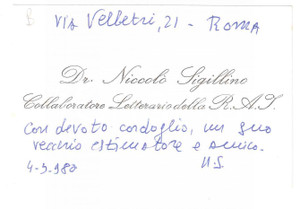 Via Velletri, 21 - Roma
Dr. Niccolò Sigillino
Collaboratore Letterario della R.A.I.
Con devoto cordoglio, un suo
vecchio estimatore e amico.
4-3-980 N.S.